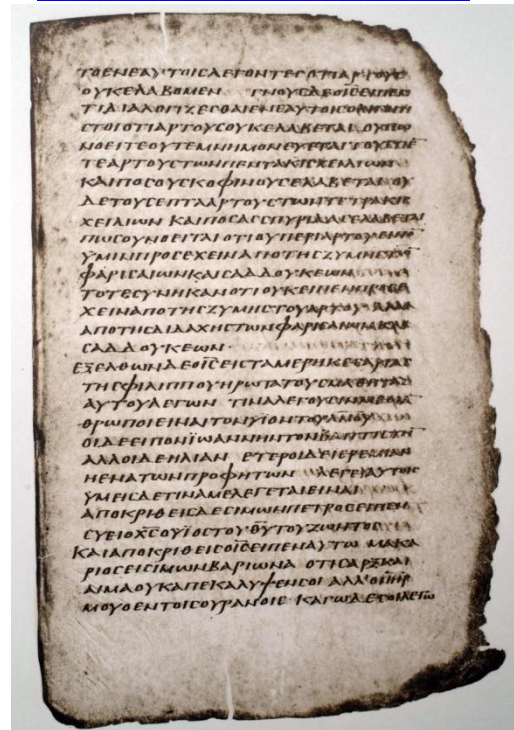 ΤΟΕΝΕΑΥΤΟΙϹΛΕΓΟΝΤΕϹΟΤΙΑΡΤΟΥϹ
ΟΥΚΕΛΑΒΟΜΕΝ ΓΝΟΥϹΔΕΟΙ̅Ϲ̅ΕΙΠΕΝ
ΤΙΔΙΑΛΟΓΙΖΕϹΘΑΙΕΝΕΑΥΤΟΙϹΟΛΙΓΟΠΙ
ϹΤΟΙΟΤΙΑΡΤΟΥϹΟΥΚΕΛΑΒΕΤΑΙ ΟΥΠΩ
ΝΟΕΙΤΕΟΥΤΕΜΝΗΜΟΝΕΥΕΤΑΙΤΟΥϹΠΕ̅
ΤΕΑΡΤΟΥϹΤΩΝΠΕΝΤΑΚΙϹΧΕΙΛΙΩΝ
ΚΑΙΠΟϹΟΥϹΚΟΦΙΝΟΥϹΕΛΑΒΕΤΑΙ ΟΥ
ΔΕΤΟΥϹΕΠΤΑΑΡΤΟΥϹΤΩΝΤΕΤΡΑΚΙϹ
ΧΕΙΛΙΩΝ ΚΑΙΠΟϹΑϹϹΠΥΡΙΔΑϹΕΛΑΒΕΤΑΙ
ΠΩϹΟΥΝΟΕΙΤΑΙΟΤΙΟΥΠΕΡΙΑΡΤΟΥΕΙΠΟ̅
ΥΜΙΝΠΡΟϹΕΧΕΙΝΑΠΟΤΗϹΖΥΜΗϹΤΩ̅
ΦΑΡΙϹΑΙΩΝΚΑΙϹΑΔΔΟΥΚΕΩΝ
ΤΟΤΕϹΥΝΗΚΑΝΟΤΙΟΥΚΕΙΠΕΝΠΡΟϹΕ
ΧΕΙΝΑΠΟΤΗϹΖΥΜΗϹΤΟΥΑΡΤΟΥ ΑΛΛΑ
ΑΠΟΤΗϹΔΙΔΑΧΗϹΤΩΝΦΑΡΙϹΑΙΩΝΚΑΙ
ϹΑΔΔΟΥΚΕΩΝ·
ΕΞΕΛΘΩΝΔΕΟΙ̅Ϲ̅ΕΙϹΤΑΜΕΡΗΚΕϹΑΡΙΑϹ
ΤΗϹΦΙΛΙΠΠΟΥΗΡΩΤΑΤΟΥϹΜΑΘΗΤΑϹ
ΑΥΤΟΥΛΕΓΩΝ ΤΙΝΑΛΕΓΟΥϹΙΝΜΕΟΙΑΝ
ΘΡΩΠΟΙΕΙΝΑΙΤΟΝΥΙΟΝΤΟΥΑ̅Ν̅Ο̅Υ̅
ΟΙΔΕΕΙΠΟΝΪΩΑΝΝΗΝΤΟΝΒΑΠΤΙϹΤΗ̅
ΑΛΛΟΙΔΕΗΛΙΑΝ ΕΤΕΡΟΙΔΕΙΕΡΕΜΙΑΝ
ΗΕΝΑΤΩΝΠΡΟΦΗΤΩΝ ΛΕΓΕΙΑΥΤΟΙϹ
ΥΜΕΙϹΔΕΤΙΝΑΜΕΛΕΓΕΤΑΙΕΙΝΑΙ
ΑΠΟΚΡΙΘΕΙϹΔΕϹΙΜΩΝΠΕΤΡΟϹΕΙΠΕΝ
ϹΥΕΙΟΧ̅Ϲ̅ΟΥΪΟϹΤΟΥΘ̅Υ̅ΤΟΥΖΩΝΤΟϹ
ΚΑΙΑΠΟΚΡΙΘΕΙϹΟΙ̅Ϲ̅ΕΙΠΕΝΑΥΤΩ ΜΑΚΑ
ΡΙΟϹΕΙϹΙΜΩΝΒΑΡΙΩΝΑ ΟΤΙϹΑΡΞΚΑΙ
ΑΙΜΑΟΥΚΑΠΕΚΑΛΥΨΕΝϹΟΙ ΑΛΛΟΠ̅Η̅Ρ̅
ΜΟΥΟΕΝΤΟΙϹΟΥΡΑΝΟΙϹ ΚΑΓΩΔΕϹΟΙΛΕΓΩ